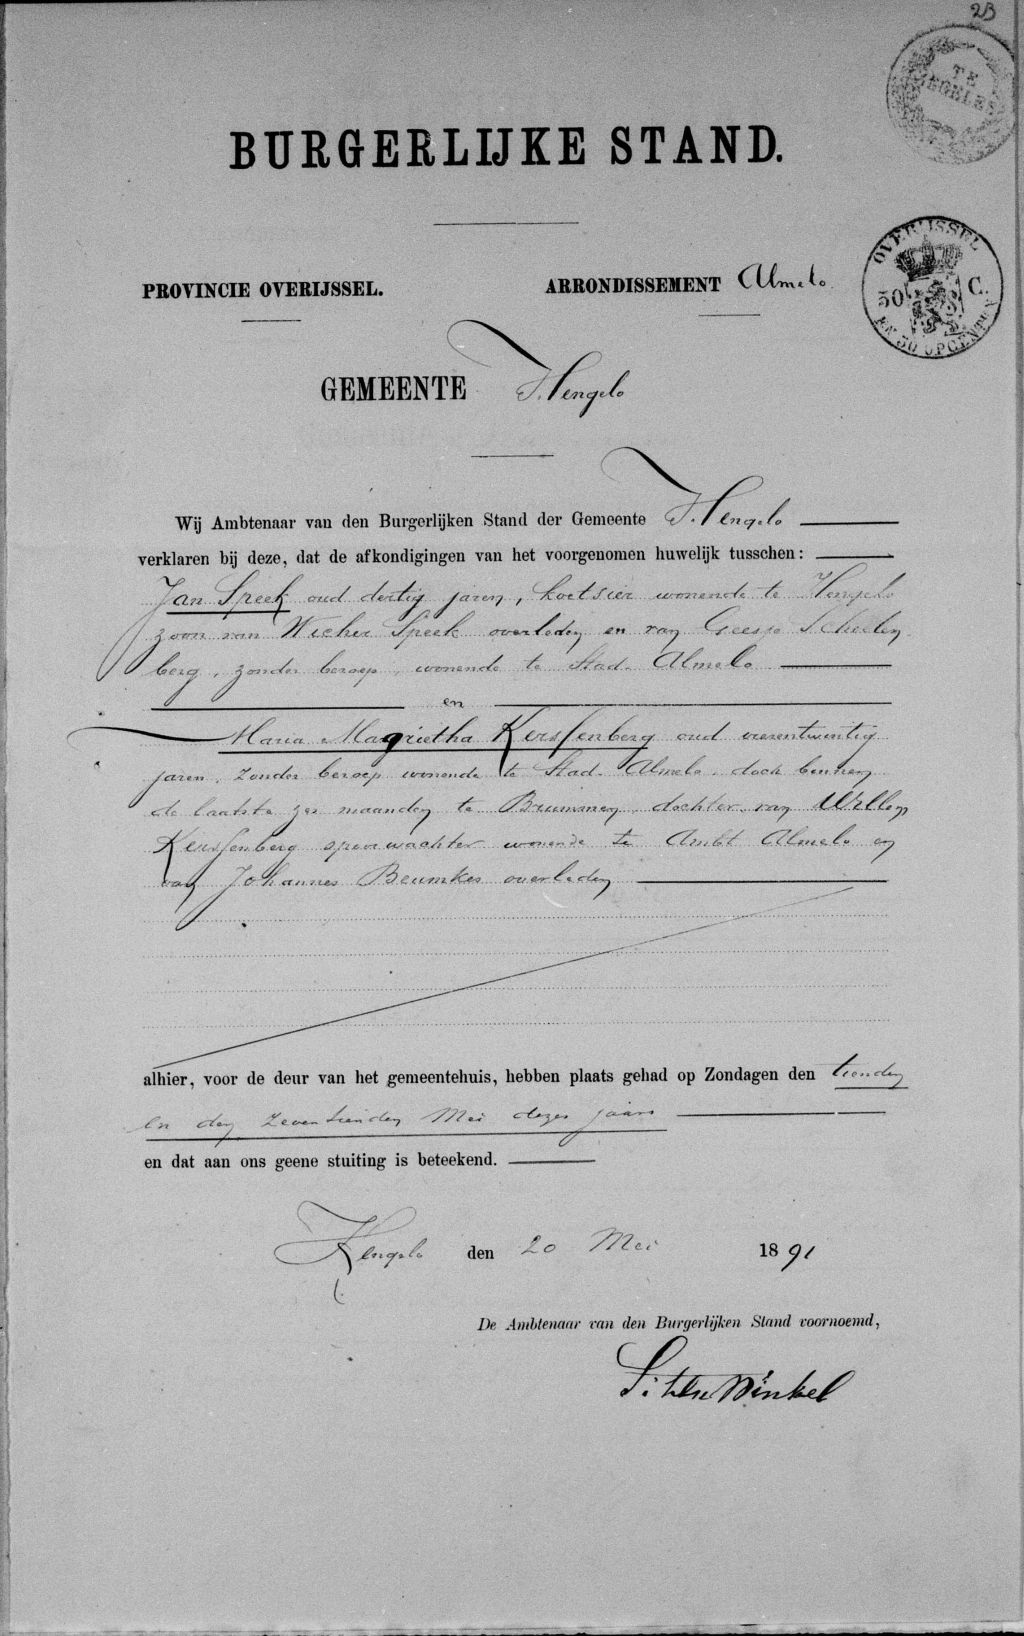 23
TE
BURGERLIJKE STAND.
PROVINCIE OVERIJSSEL.
ARRONDISSEMENT Almelo
OVERIJSSEL
50 C.
EN 50 OPCENTEN
GEMEENTE Hengelo
Wij Ambtenaar van den Burgerlijken Stand der Gemeente Hengelo
verklaren bij deze, dat de afkondigingen van het voorgenomen huwelijk tusschen:
Jan Speek oud dertig jaren, koetsier wonende te Hengelo
zoon van Wicher Speek overleden en van Geesje Scholten
berg, zonder beroep, wonende te Stad-Almelo
en
Maria Magrietha Kerssenberg oud vierentwintig
jaren, zonder beroep wonende te Stad-Almelo doch binnen
de laatste zes maanden te Brummen, dochter van Willem
Kerssenberg spoorwachter wonende te Ambt Almelo en
van Johannes Beumkes overleden
alhier, voor de deur van het gemeentehuis, hebben plaats gehad op Zondagen den tienden
en den zeventienden Mei dezes jaars
en dat aan ons geene stuiting is beteekend.
Hengelo den 20 Mei 1891
De Ambtenaar van den Burgerlijken Stand voornoemd,
Winkel